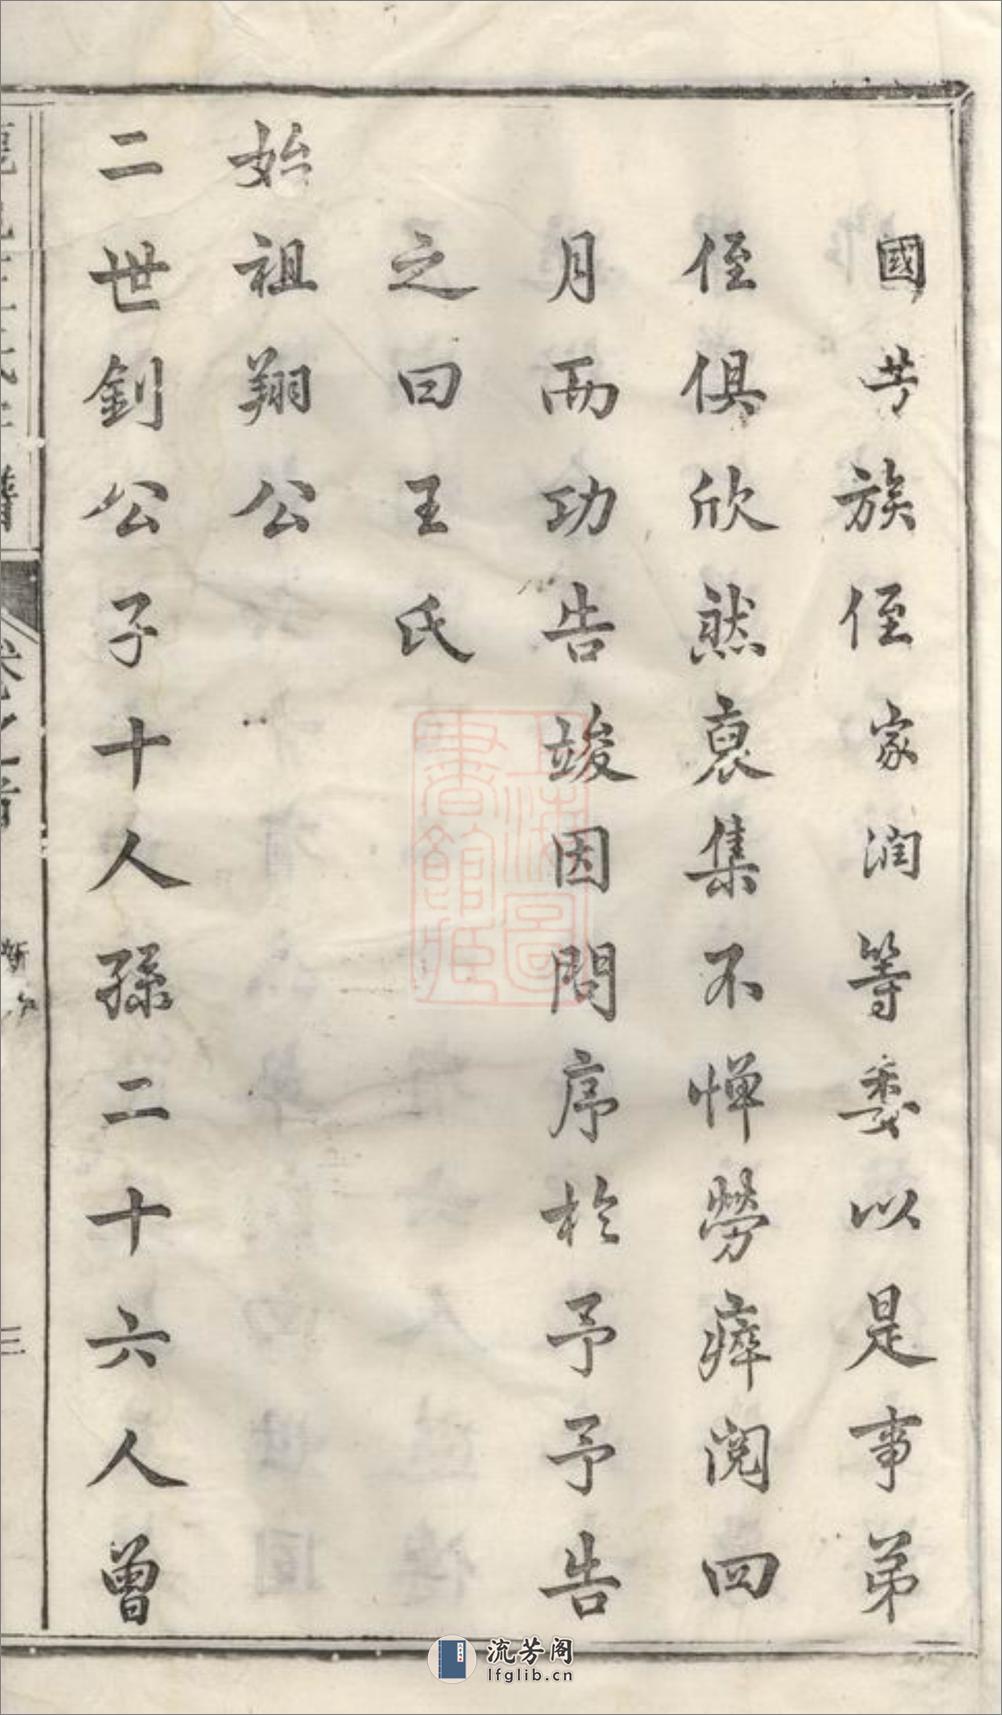 國芳族侄家潤等委以是事弟
侄俱欣然裒集不憚勞瘁閱四
月而功告竣因問序於予予告
之曰王氏
始祖翔公
二世釗公子十人孫二十六人曾
譜
卷之首
三
上海圖書館藏
流芳阁
lfglib.cn